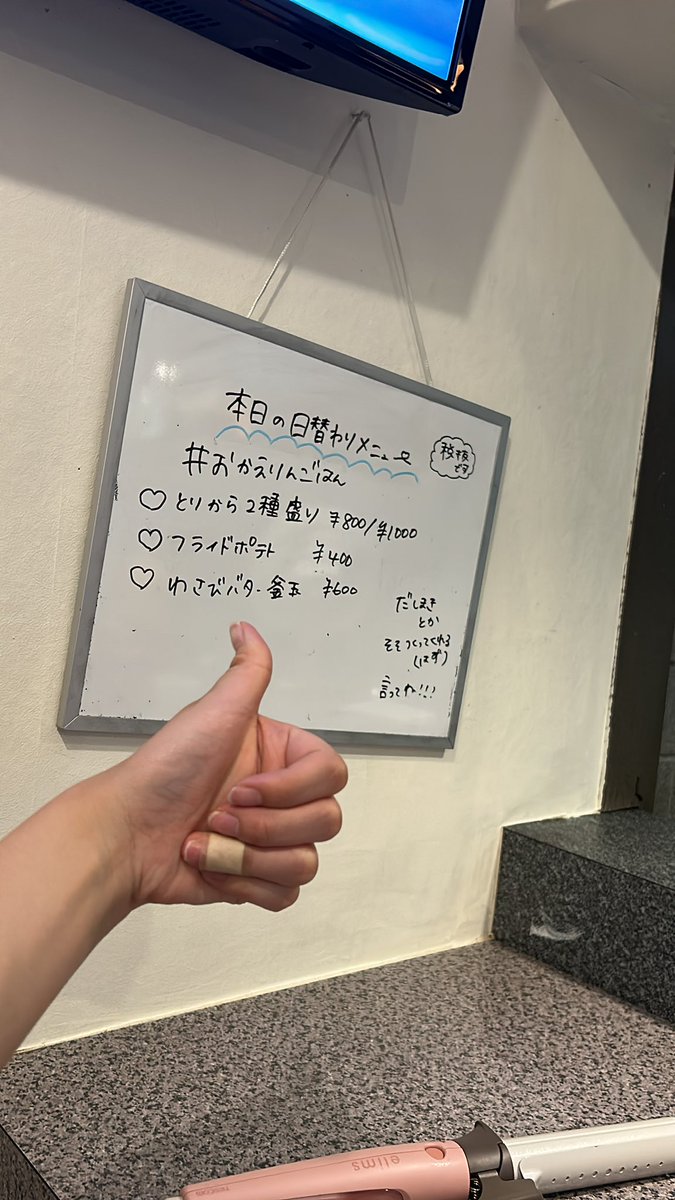 本日の日替わりメニュー
税抜
です
#おかえりんごはん
♡とりから2種盛り ¥800/¥1000
♡フライドポテト ¥400
♡わさびバター釜玉 ¥600
だしまき
とか
そそつくってくれる
(はず)
言ってね!!!
elims